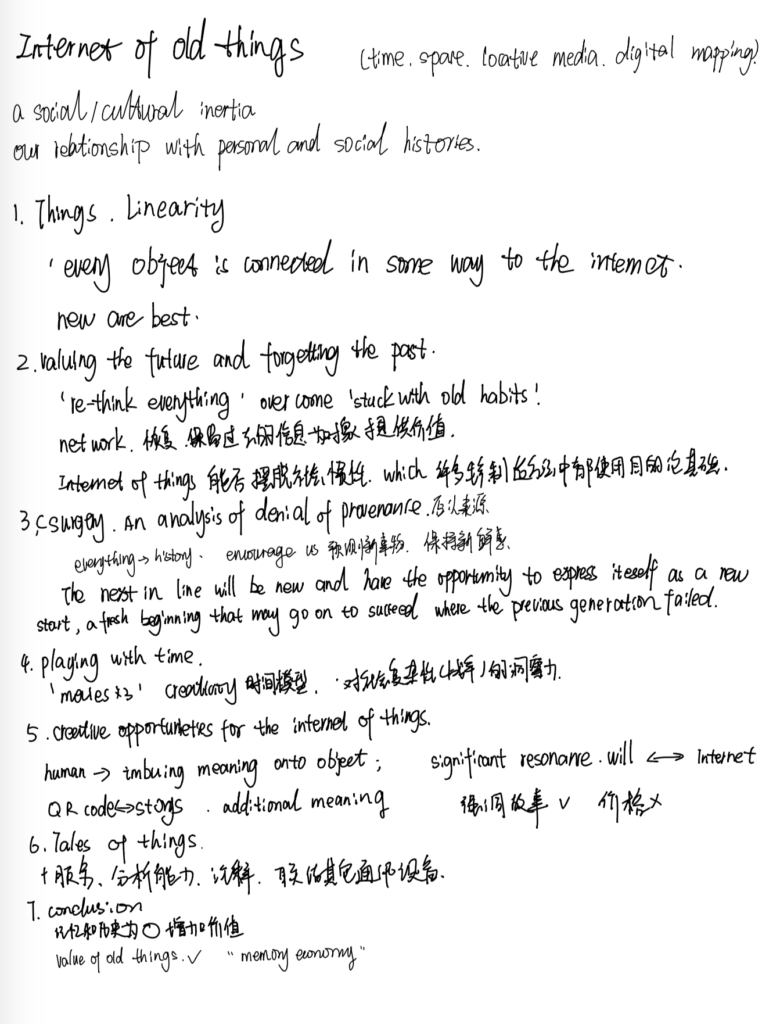 Internet of old things (time. space. locative media. digital mapping)
a social/cultural inertia
our relationship with personal and social histories.
1. Things. Linearity
'every object is connected in some way to the internet.
new are best.
2. valuing the future and forgetting the past.
're-think everything' over come 'stuck with old habits'!
network. 恢复 保留过去的信息 如 提供价值.
Internet of things 能否摆脱 惯性. which 中都使用目的论基础.
3. surgery. An analysis of denial of provenance. 否认来源
everything → history. encourage us 预测新事物. 保持新鲜感
The next in line will be new and have the opportunity to express iteself as a new
start, a fresh beginning that may go on to succeed where the previous generation failed.
4. playing with time.
时间模型. 对社会复杂性 的洞察力.
5. creative opportuneties for the internet of things.
human → imbuing meaning onto object; significant resonanre. will ←→ Internet
QR code↔storys. additional meaning 强调故事 ✓ 价格 ×
6. Tales of things.
+ 服务、分析能力、注解. 其它通信设备.
7. conclusion
记忆和历史为○增加价值
value of old things. ✓ "memory economy"